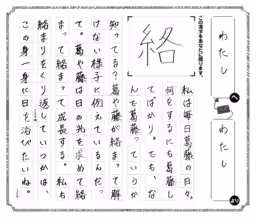 わたし
へ
わたし
より
この漢字をあなたに贈ります。
絡
私は毎日葛藤の日々。
何をするにも葛藤し
てばかり。でも、な
んで葛藤っていうか
知ってる?葛や藤が絡まって解
けない様子に例えているんだっ
て。葛や藤は日の光を求めて絡
まって絡まって成長する。私も
絡まりをくり返していつかは、
この身一身に日を浴びたいね。